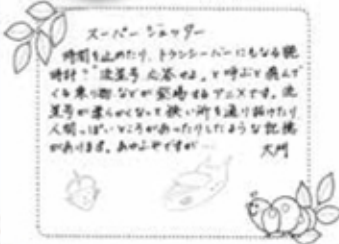 スーパージェッター
時間を止めたり、トランシーバーにもなる腕
時計？"流星号応答せよ"と呼ぶと飛んで
くる乗り物などが登場するアニメです。流
星号が柔らかくなって狭い所を通り抜けたり
人間っぽいところがあったりしたような記憶
があります。あやふやですが…
大門